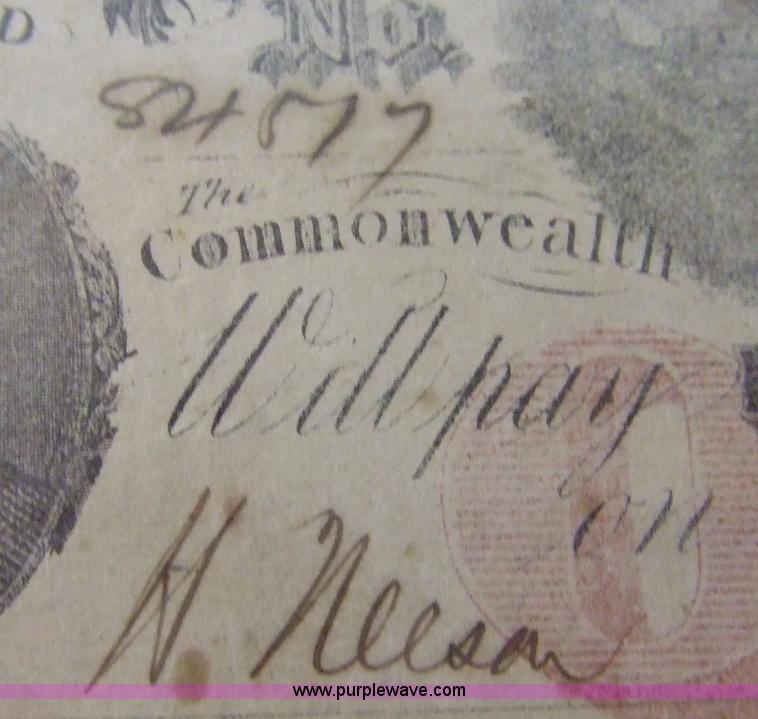 D No.
84577
The
Commonwealth
Will pay
on
H Neeson
www.purplewave.com